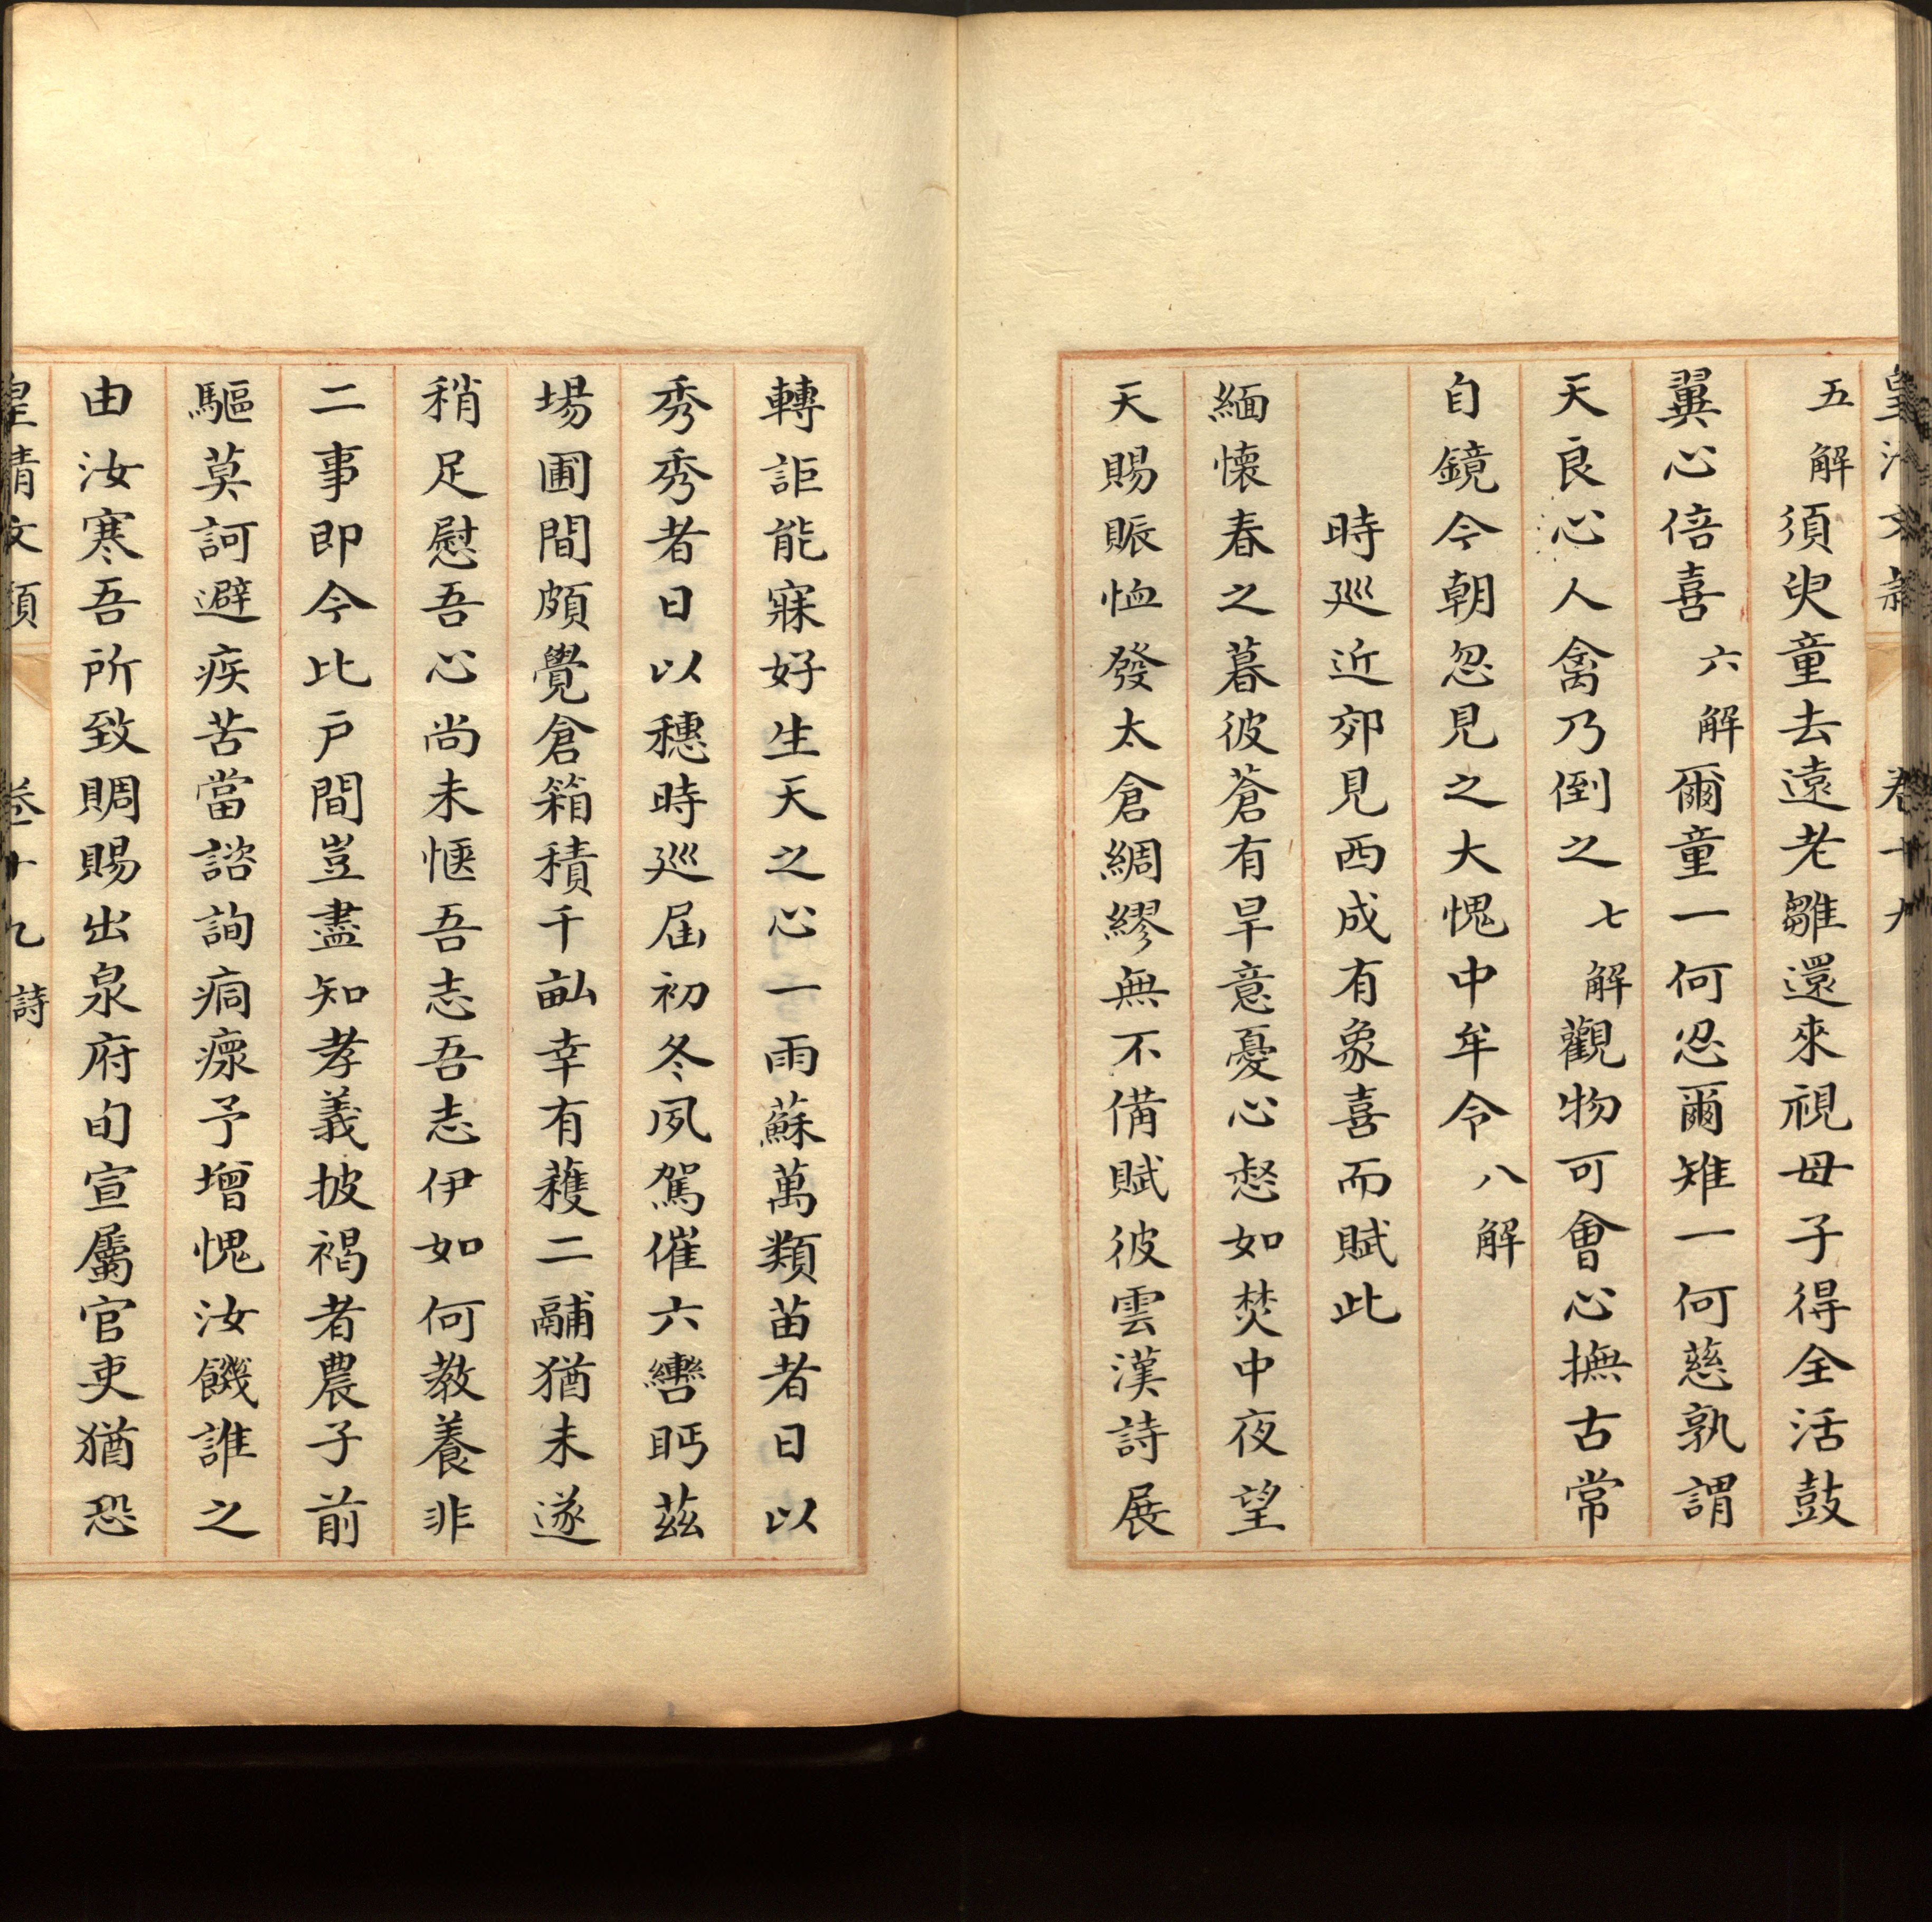 皇清文 卷十九
五解須臾童去遠老雛還來視母子得全活鼓
翼心倍喜六解爾童一何忍爾雉一何慈孰謂
天良心人禽乃倒之七解觀物可會心撫古常
自鏡今朝忽見之大愧中牟令八解
時廵近郊見西成有象喜而賦此
緬懷春之暮彼蒼有旱意憂心惄如焚中夜望
天賜賑恤發太倉綢繆無不備賦彼雲漢詩展
轉詎能寐好生天之心一雨蘇萬類苗者日以
秀秀者日以穗時廵屆初冬夙駕催六轡眄茲
場圃間頗覺倉箱積千畝幸有穫二鬴猶未遂
稍足慰吾心尚未愜吾志吾志伊如何教養非
二事即今比戶間豈盡知孝義披褐者農子前
驅莫訶避疾苦當諮詢痌瘝予增愧汝饑誰之
由汝寒吾所致賙賜出泉府旬宣屬官吏猶恐
皇清文穎 卷十九詩